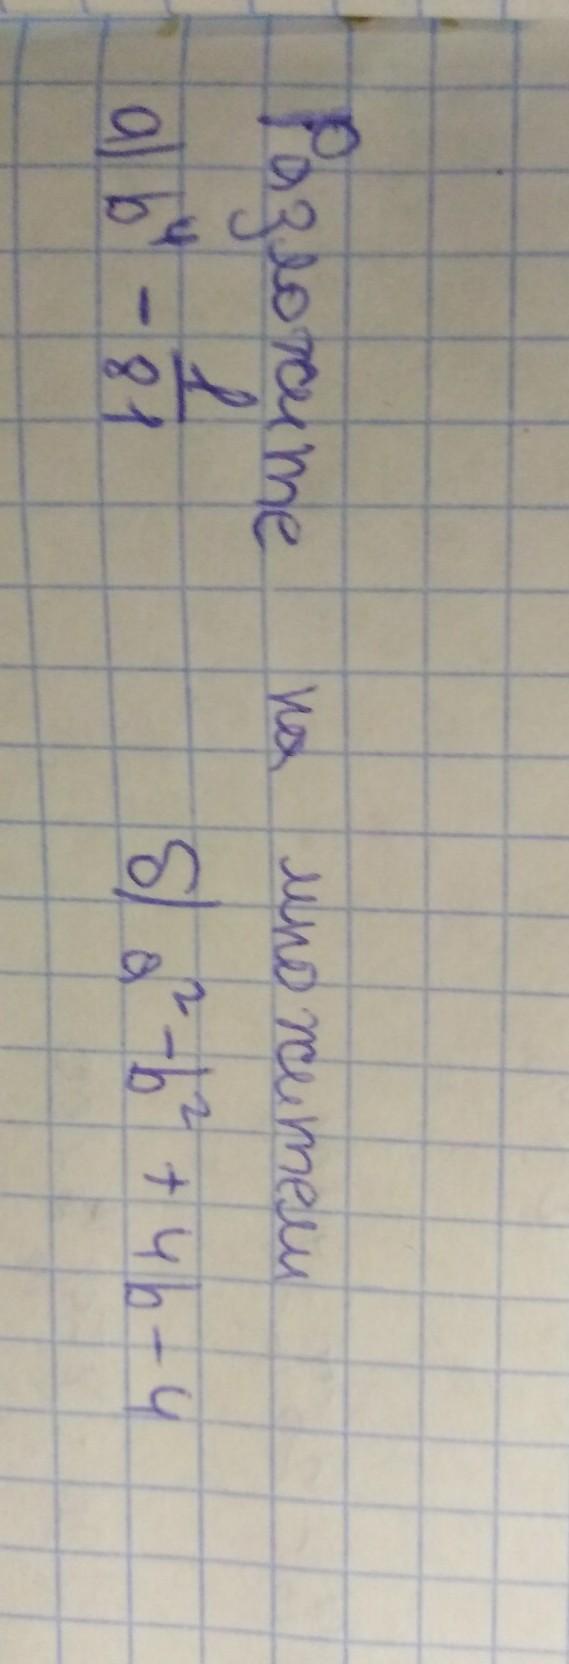 Разложите на множители
а) b⁴ - 1/81 б) a² - b² + 4b - 4